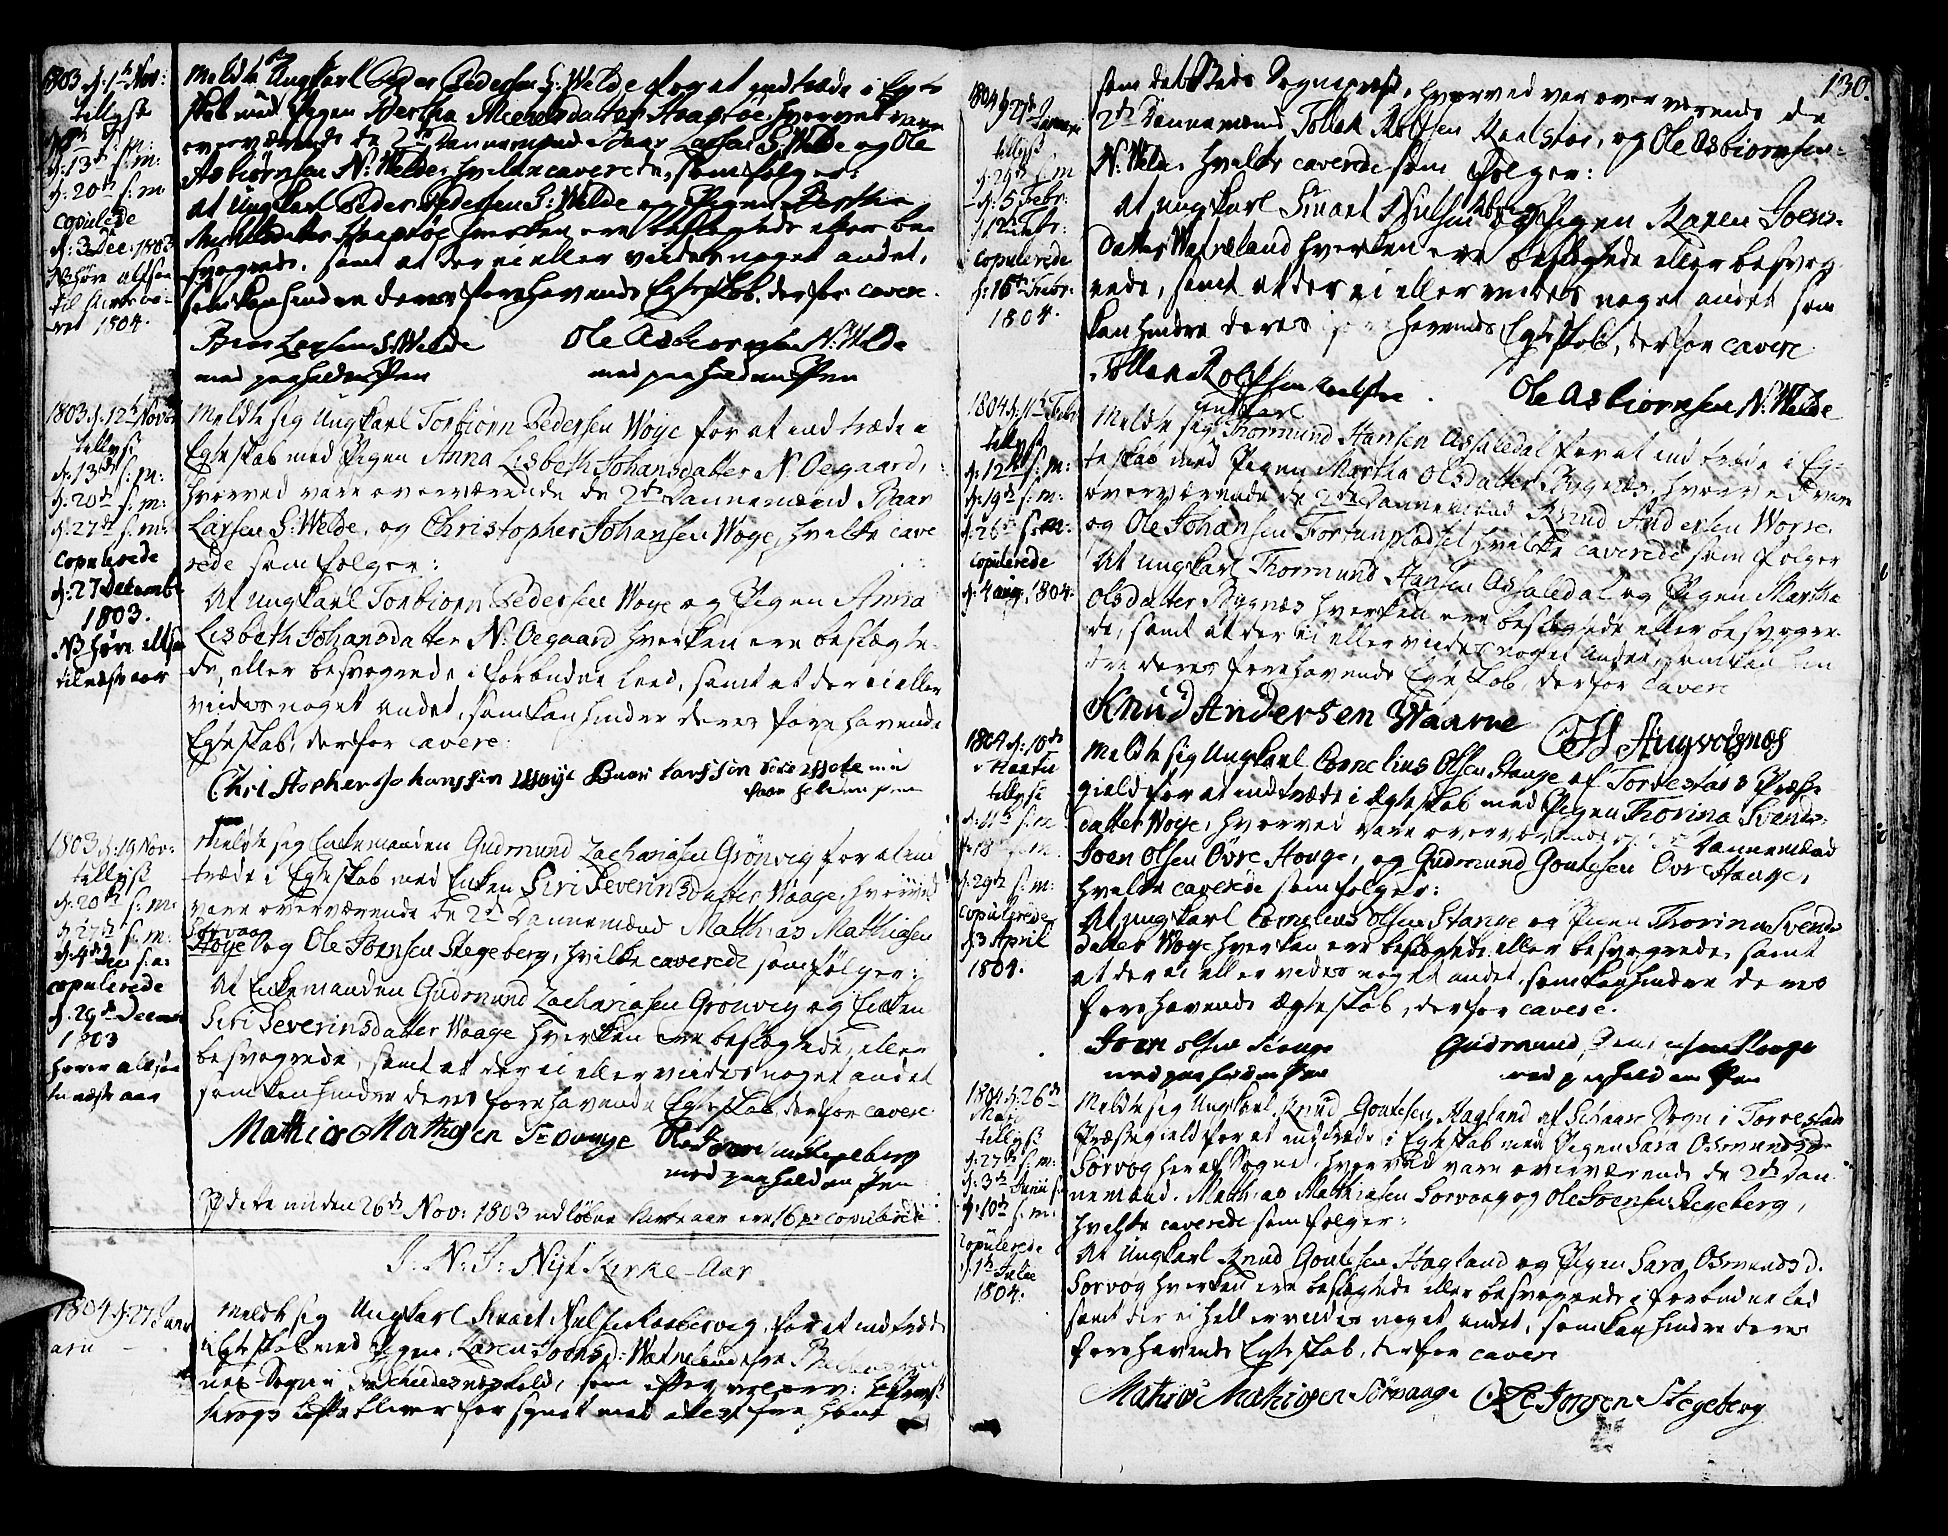 1803 d: 1te Nov:
tillyst
d: 13de s: m:
d: 20de s: m
copulerede
d: 3 Dec: 1803
NB høre altsaa
til
1804.
Meldte sig Ungkarl Peder Pedersen S: Welde for at indtræde i Egte
skab med Pigen Bertha Michelsdatter Haaptøe, hvorved vare
overværende de 2de Dannemænd Baar Larsen S: Welde og Ole
Asbiørnsen N: Welde, hvilke caverede, som følger:
at Ungkarl Peder Pedersen S: Welde og Pigen Bertha
Michelsdatter Haaptøe hverken ere beslægtede eller be
svogrede, samt at der ei eller vides noget andet,
som kan hindre deres forehavende Egteskab, derfor cavere.
Baar Larsen S: Welde
Ole Asbiornsen N: Welde
med paaholden Pen
med paaholden Pen
1803 d: 12te Novbr
tillyst
d: 13de s: m:
d: 20de s: m:
d: 27de s: m:
copulerede
d: 27 Decembr
1803.
NB høre altsaa
til næste aar
Meldte sig Ungkarl Torbiørn Pedersen Woye for at indtræde i
Egteskab med Pigen Anna Lisbeth Johansdatter N: Oegaard,
hvorved vare overværende de 2de Dannemænd Baar
Larsen S: Welde, og Christopher Johansen Woye, hvilke cave
rede som følger:
At Ungkarl Torbiørn Pedersen Woye og Pigen Anna
Lisbeth Johansdatter N: Oegaard hverken ere beslægte
de, eller besvogrede i forbudne Leed, samt at der ei eller
vides noget andet, som kan hindre deres forehavende
Egteskab, derfor cavere:
Christopher Johanssen Woye Baar Larssen Søre Welde med
paaholden pen
1803 d: 19 Nov:
tillyst
d: 20de s: m:
d: 27de s: m:
d: 4de Dec s: m:
copulerede
d: 29de Decem
1803
hører altsaa
til næste aar
Meldte sig Enkemanden Gudmund Zachariasen Grønvig for at ind
træde i Egteskab med Enken Siri Severinsdatter Waage, hvorved
vare overværende de 2de Dannemænd Mathias Mathiasen
Sørvaag
Høye og Ole Joensen Stegeberg, hvilke caverede som følger:
At Enkemanden Gudmund Zachariasen Grønvig og Enken
Siri Severinsdatter Waage hverken ere beslægtede, eller
besvogrede, samt at der ei eller vides noget andet
som kan hindre deres forehavende Egteskab, derfor cavere.
Mathias Mathisen Sørvaage Ole Joensen Stegeberg
med paaholden Pen
I dette under 26de Nov: 1803 udløbne Kirkeaar ere 16 par copulerede
I: N: I: Nyt Kirke-Aar
1804 d: 27 Janu
arii
Meldte sig Ungkarl Knuet Nielsen for at indtræde
i Egteskab med Pigen Karen Joensd: Watneland
Sogn i Præstegield, som efter
bliver forsynet med attest fra ham
130.
1804 d: 27de Januar
tillyst
d: 29de s: m
d: 5 Febr:
d: 12 Febr:
copulerede
d: 16de Febr:
1804.
som det Steds Sognepræst, hvorved var overværende de
2de Dannemænd Tollak Rolfsen Raalstoe, og Ole Asbiørnsen
N: Welde, hvilke caverede som følger:
At Ungkarl Knuet Nielsen og Pigen Karen Joens-
datter Watneland hverken ere beslægtede eller besvog
rede, samt at der ei eller vides noget andet som
kan hindre deres forehavende Egteskab, derfor cavere
Tollak Rolfsen
Ole Asbiørnsen N: Welde
1804 d: 11te Febr
tillyst
d: 12te s: m:
d: 19de s: m:
d: 26de s: m:
copulerede
d: 4 aug: 1804.
Ungkarl
Meldte sig Thormund Hansen Assaledal for at indtræde i Eg-
teskab med Pigen Martha Olsdatter Rygnes, hvorved vare
overværende de 2de Dannemænd Knud Andersen Worre
og Ole Johansen Fortunpladset hvilke caverede som følger
At Ungkarl Thormund Hansen Assaledal og Pigen Martha
Olsdatter Rygnes hverken ere beslægtede eller besvogre
de, samt at der ei eller vides noget andet, som kan hin
dre deres forehavende Egteskab, derfor cavere
Knud Andersen Waarne
1804 d: 10de
Martii
tillyst
d: 11te s: m
d: 18de s: m:
d: 29de s: m:
copulerede
d: 3 April
1804.
Meldte sig Ungkarl Cornelius Olsen Stange af Torvestads Præste
gield for at indtræde i Egteskab med Pigen Thorina Svends-
datter Woye, hvorved vare overværende de 2de Dannemænd
Joen Olsen Øvre Hauge, og Gudmund Goutesen Øvre Hauge,
hvilke caverede som følger:
At Ungkarl Cornelius Olsen Stange og Pigen Thorina Svends
datter Woye hverken ere beslægtede eller besvogrede, samt
at der ei eller vides noget andet, som kan hindre deres
forehavende Egteskab, derfor cavere.
Joen Olsen Hauge
Gudmund
med paaholden Pen
med paaholden Pen
1804 d: 26de
Maii
tillyst
d: 27de s: m:
d: 3de Junii
d: 10de s: m:
copulerede
d: 1te Julie
1804.
Meldte sig Ungkarl Knud Goutesen Hagland af Schaare Sogn i Torvestads
Præstegield for at indtræde i Egteskab med Pigen Sara Osmundsd:
Sørvog her af Sognet, hvorved vare overværende de 2de Dan-
nemænd, Mathias Mathiasen Sørvaag og Ole Joensen Stegeberg,
hvilke caverede som følger:
At Ungkarl Knud Goutesen Hagland og Pigen Sara Osmundsd.
Sørvog hverken ere beslægtede eller besvogrede i forbudne led
samt der ei hell er vides noget andet, som kan hindre deres
forehavende Egteskab, derfor cavere
Mathias Mathiasen Sørvaage Ole Jonsen Stegeberg